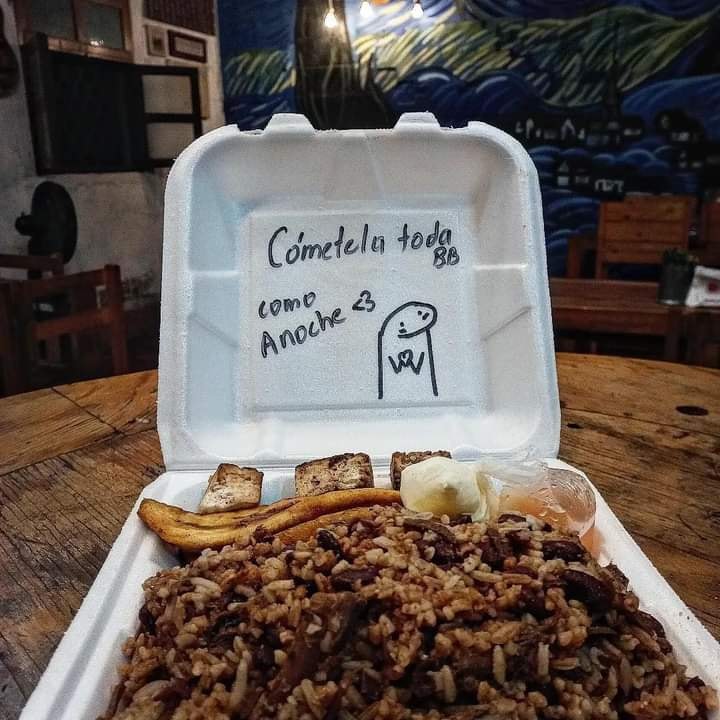 Cómetela toda
BB
como
Anoche <3